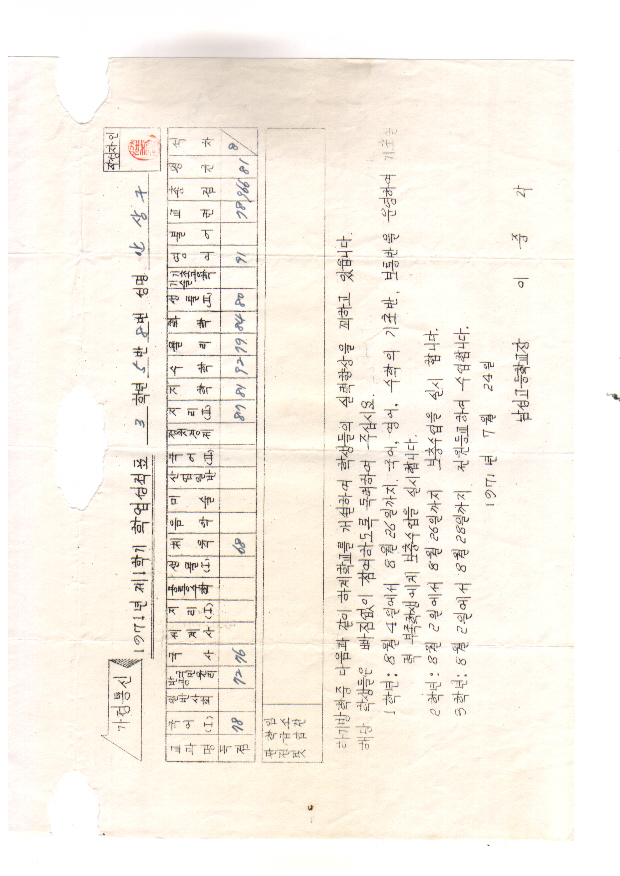 가정통신
작성자인
1971년 제1학기 학업성적표 3 학년 5반 8번 성명 안 상 구
교과명 국어(I) 일반사회 국민윤리 국사 세계사 지리(I) 공통수학 생물(I) 체육 음악 미술 산업일반 국어(II) 정치경제 지리(II) 지학 수학 물리 화학 생물(II) 기술 기초공학 영어 불어 교련 총점 평균 석차
득점 78 72 76 68 87 81 92 79 84 80 91 78 966 81 8/
판 학 임
전 급 소
및 담 견
하기방학중 다음과 같이 하계학교를 개설하여 학생들의 실력향상을 꾀하고 있습니다.
해당 학생들은 빠짐없이 참여하도록 독려하여 주십시요.
1학년: 8월 4일에서 8월 26일까지. 국어, 영어, 수학의 기초반, 보통반을 운영하여 기초
력 부족학생에게 보충수업을 실시합니다.
2학년: 8월 2일에서 8월 26일까지 보충수업을 실시 합니다.
3학년: 8월 2일에서 8월 28일까지 전원등교하여 수업합니다.
1971년 7월 24일
남성고등학교장 이 중 각